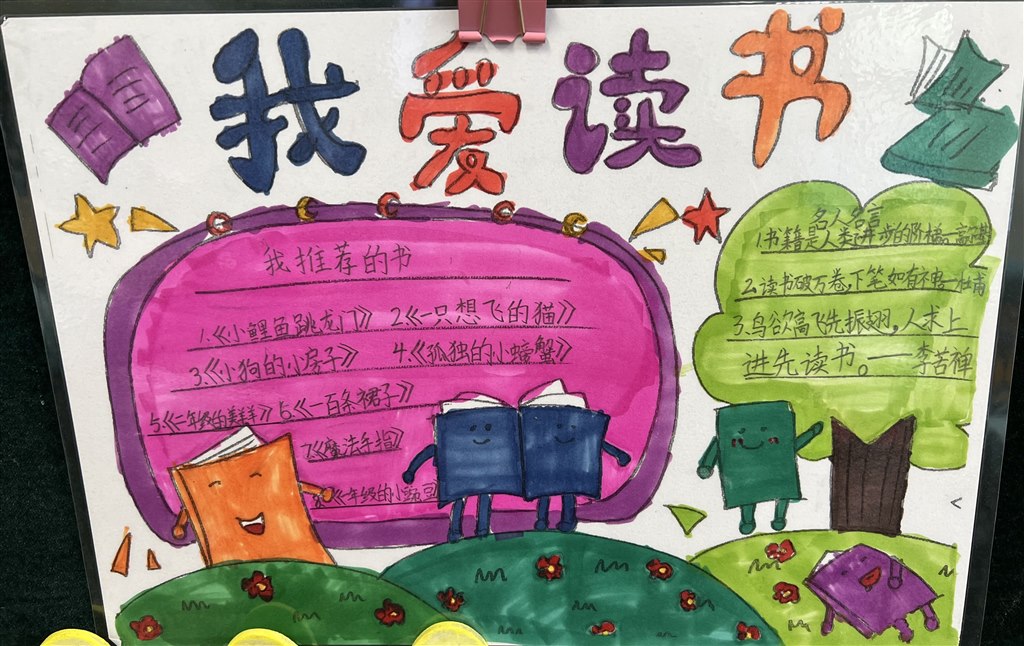 我爱读书
我推荐的书
1.《小鲤鱼跳龙门》 2.《一只想飞的猫》
3.《小狗的小房子》 4.《孤独的小螃蟹》
5.《二年级的 6.《一百条裙子》
7.《魔法手指》
8.《一年级的小豌豆
名人名言
1.书籍是人类进步的阶梯。——高尔基
2.读书破万卷,下笔如有神。——杜甫
3.鸟欲高飞先振翅,人求上
进先读书。——李苦禅